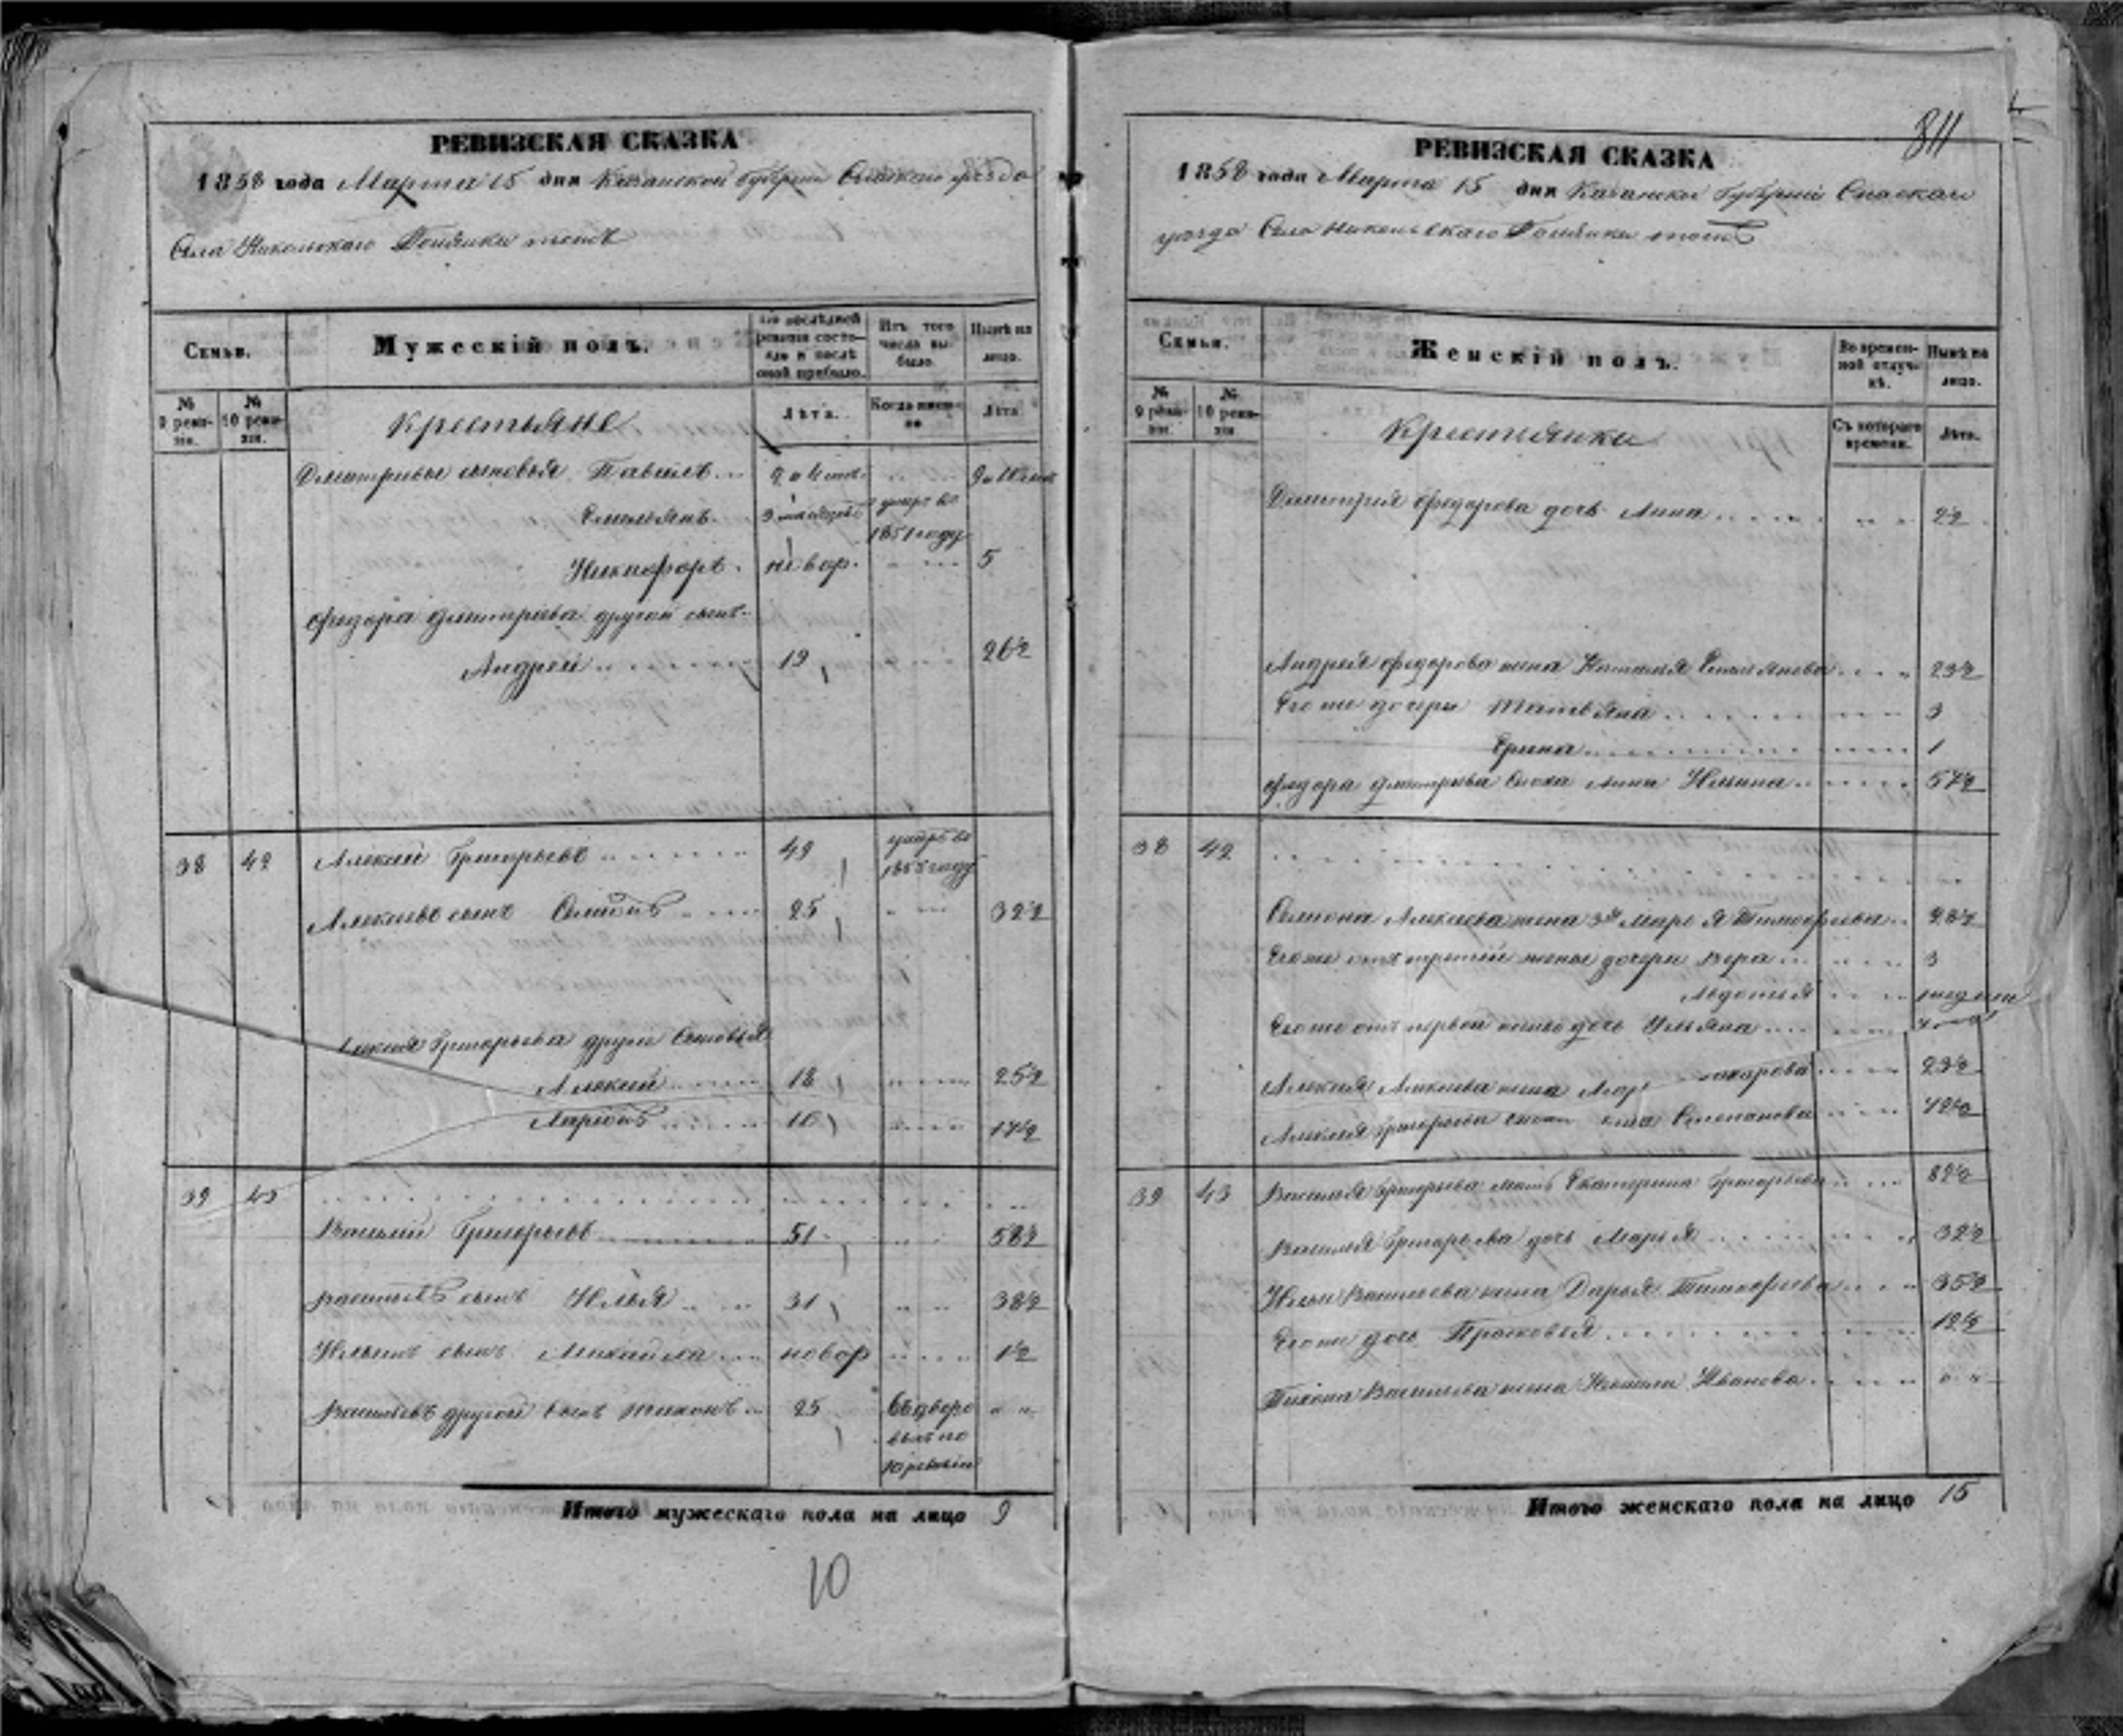 РЕВИЗСКАЯ СКАЗКА
1858 года Марта 15 дня Казанской Губерніи Спаскаго уезда
Села Никольскаго тожъ
Семьи.
Мужескій полъ.
По послѣдней ревизіи состояло и послѣ оной прибыло.
Изъ того числа выбыло.
Нынѣ на лицо.
№ 9 ревизіи.
№ 10 ревизіи.
Крестьяне
Лѣта.
Когда именно
Лѣта
Дмитріевы сыновья Павелъ
Емельянъ. 3 месяцовъ умеръ въ 1851 году
Никифоръ. новор. 5
Федора Дмитріева другой сынъ
Андрей 19 26½
38 42 Алексей Григорьевъ 49 умеръ въ 1855 году
Алексеевъ сынъ Семіонъ 25 32½
Алексея Григорьева други Сыновья
Алексей 18 25½
Ларіонъ 10 17½
39 43
Василий Григорьевъ 51 58½
Васильевъ сынъ Илья 31 38½
Ильинъ сынъ Михайла новор 1½
Васильевъ другой сынъ Тихонъ 25 въ дворовыхъ по 10 ревизіи
Итого мужескаго пола на лицо 9
10
811
РЕВИЗСКАЯ СКАЗКА
1858 года Марта 15 дня Казанской Губерніи Спаскаго
уезда Села Никольскаго тожъ
Семьи.
Женскій полъ.
Во временной отлучкѣ.
Нынѣ на лицо.
№ 9 ревизіи.
№ 10 ревизіи
Крестьянки
Съ котораго времени.
Лѣта.
Дмитрія Федорова дочь Анна 22
Андрея Федорова жена Наталья Емельянова 23½
Его же дочери Татьяна 3
Ерина 1
Федора Дмитріева сноха Анна Ильина 57½
38 42
Семиона Алексеева жена 3я Марья Тимофеева 28½
Его же отъ третей жены дочери Вера 3
Авдотья
Его же отъ первой жены дочь Ульяна
Алексея Алексеева жена 23½
Алексея Григорьева Степанова
39 43 Василья Григорьева мать Екатерина Григорьева 82½
Василья Григорьева дочь Марья 32½
Ильи Васильева жена Дарья Тимофеева 35½
Его же дочь Прасковья 12½
Тихона Васильева жена Иванова
Итого женскаго пола на лицо 15